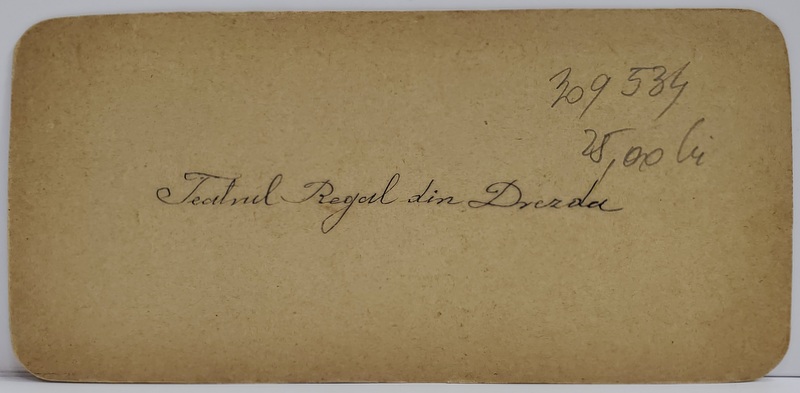 309 534
25,00 lei
Teatrul Regal din Drezda